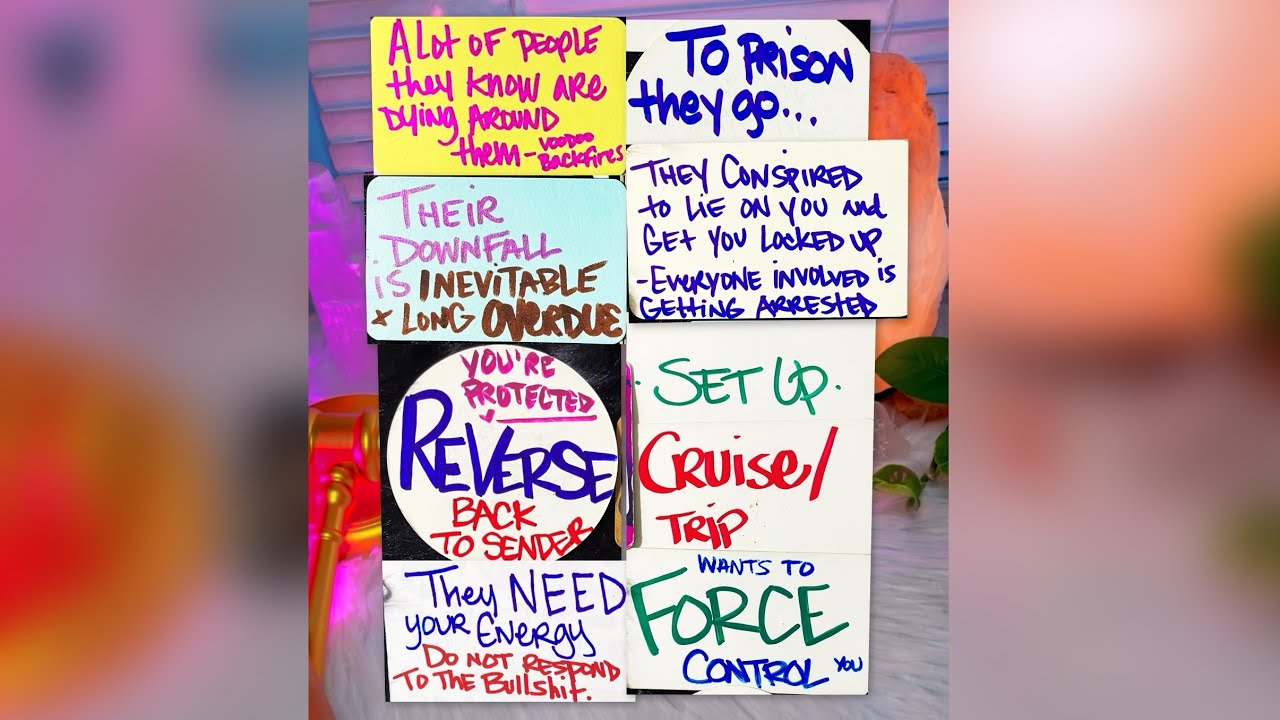 A Lot OF PEOPLE
they KNOW ARE
DYING AROUND
them - VOODOO
BACKfiRES
THEiR
DOWNFALL
iS INEViTABLE
& LONG OVERDUE
YOU'RE
PROTECTED
REVERSE
BACK
TO SENDER
They NEED
YOUR ENERGY
DO NOT RESPOND
TO THE BullShit.
TO PRiSON
they go...
THEY CONSPIRED
to LiE ON YOU and
GEt YOU LOCKED UP
- EVERYONE INVOLVED iS
GEttiNG ARRESTED
. SET UP.
CRuise/
TRiP
WANTS TO
FORCE
CONTROL YOU